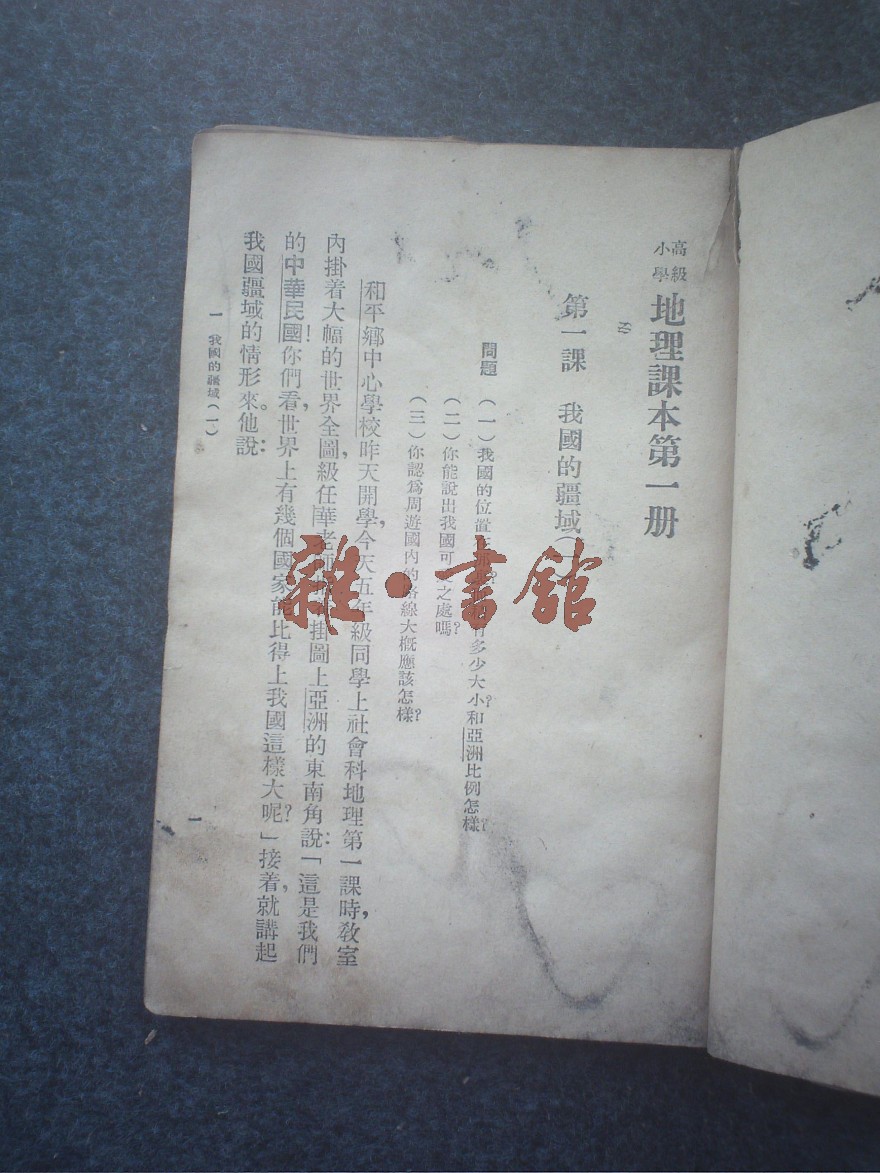 高級小學 地理課本第一册
第一課 我國的疆域(一
問題 (一)我國的位置 有多少大小?和亞洲比例怎樣?
(二)你能說出我國可 之處嗎?
(三)你認爲周遊國內的路線大概應該怎樣?
和平鄉中心學校昨天開學,今天五年級同學上社會科地理第一課時,教室
內掛着大幅的世界全圖,級任華老師 掛圖上亞洲的東南角說:「這是我們
的中華民國!你們看,世界上有幾個國家能比得上我國這樣大呢?」接着,就講起
我國疆域的情形來。他說:
一 我國的疆域(一)
一
雜·書館